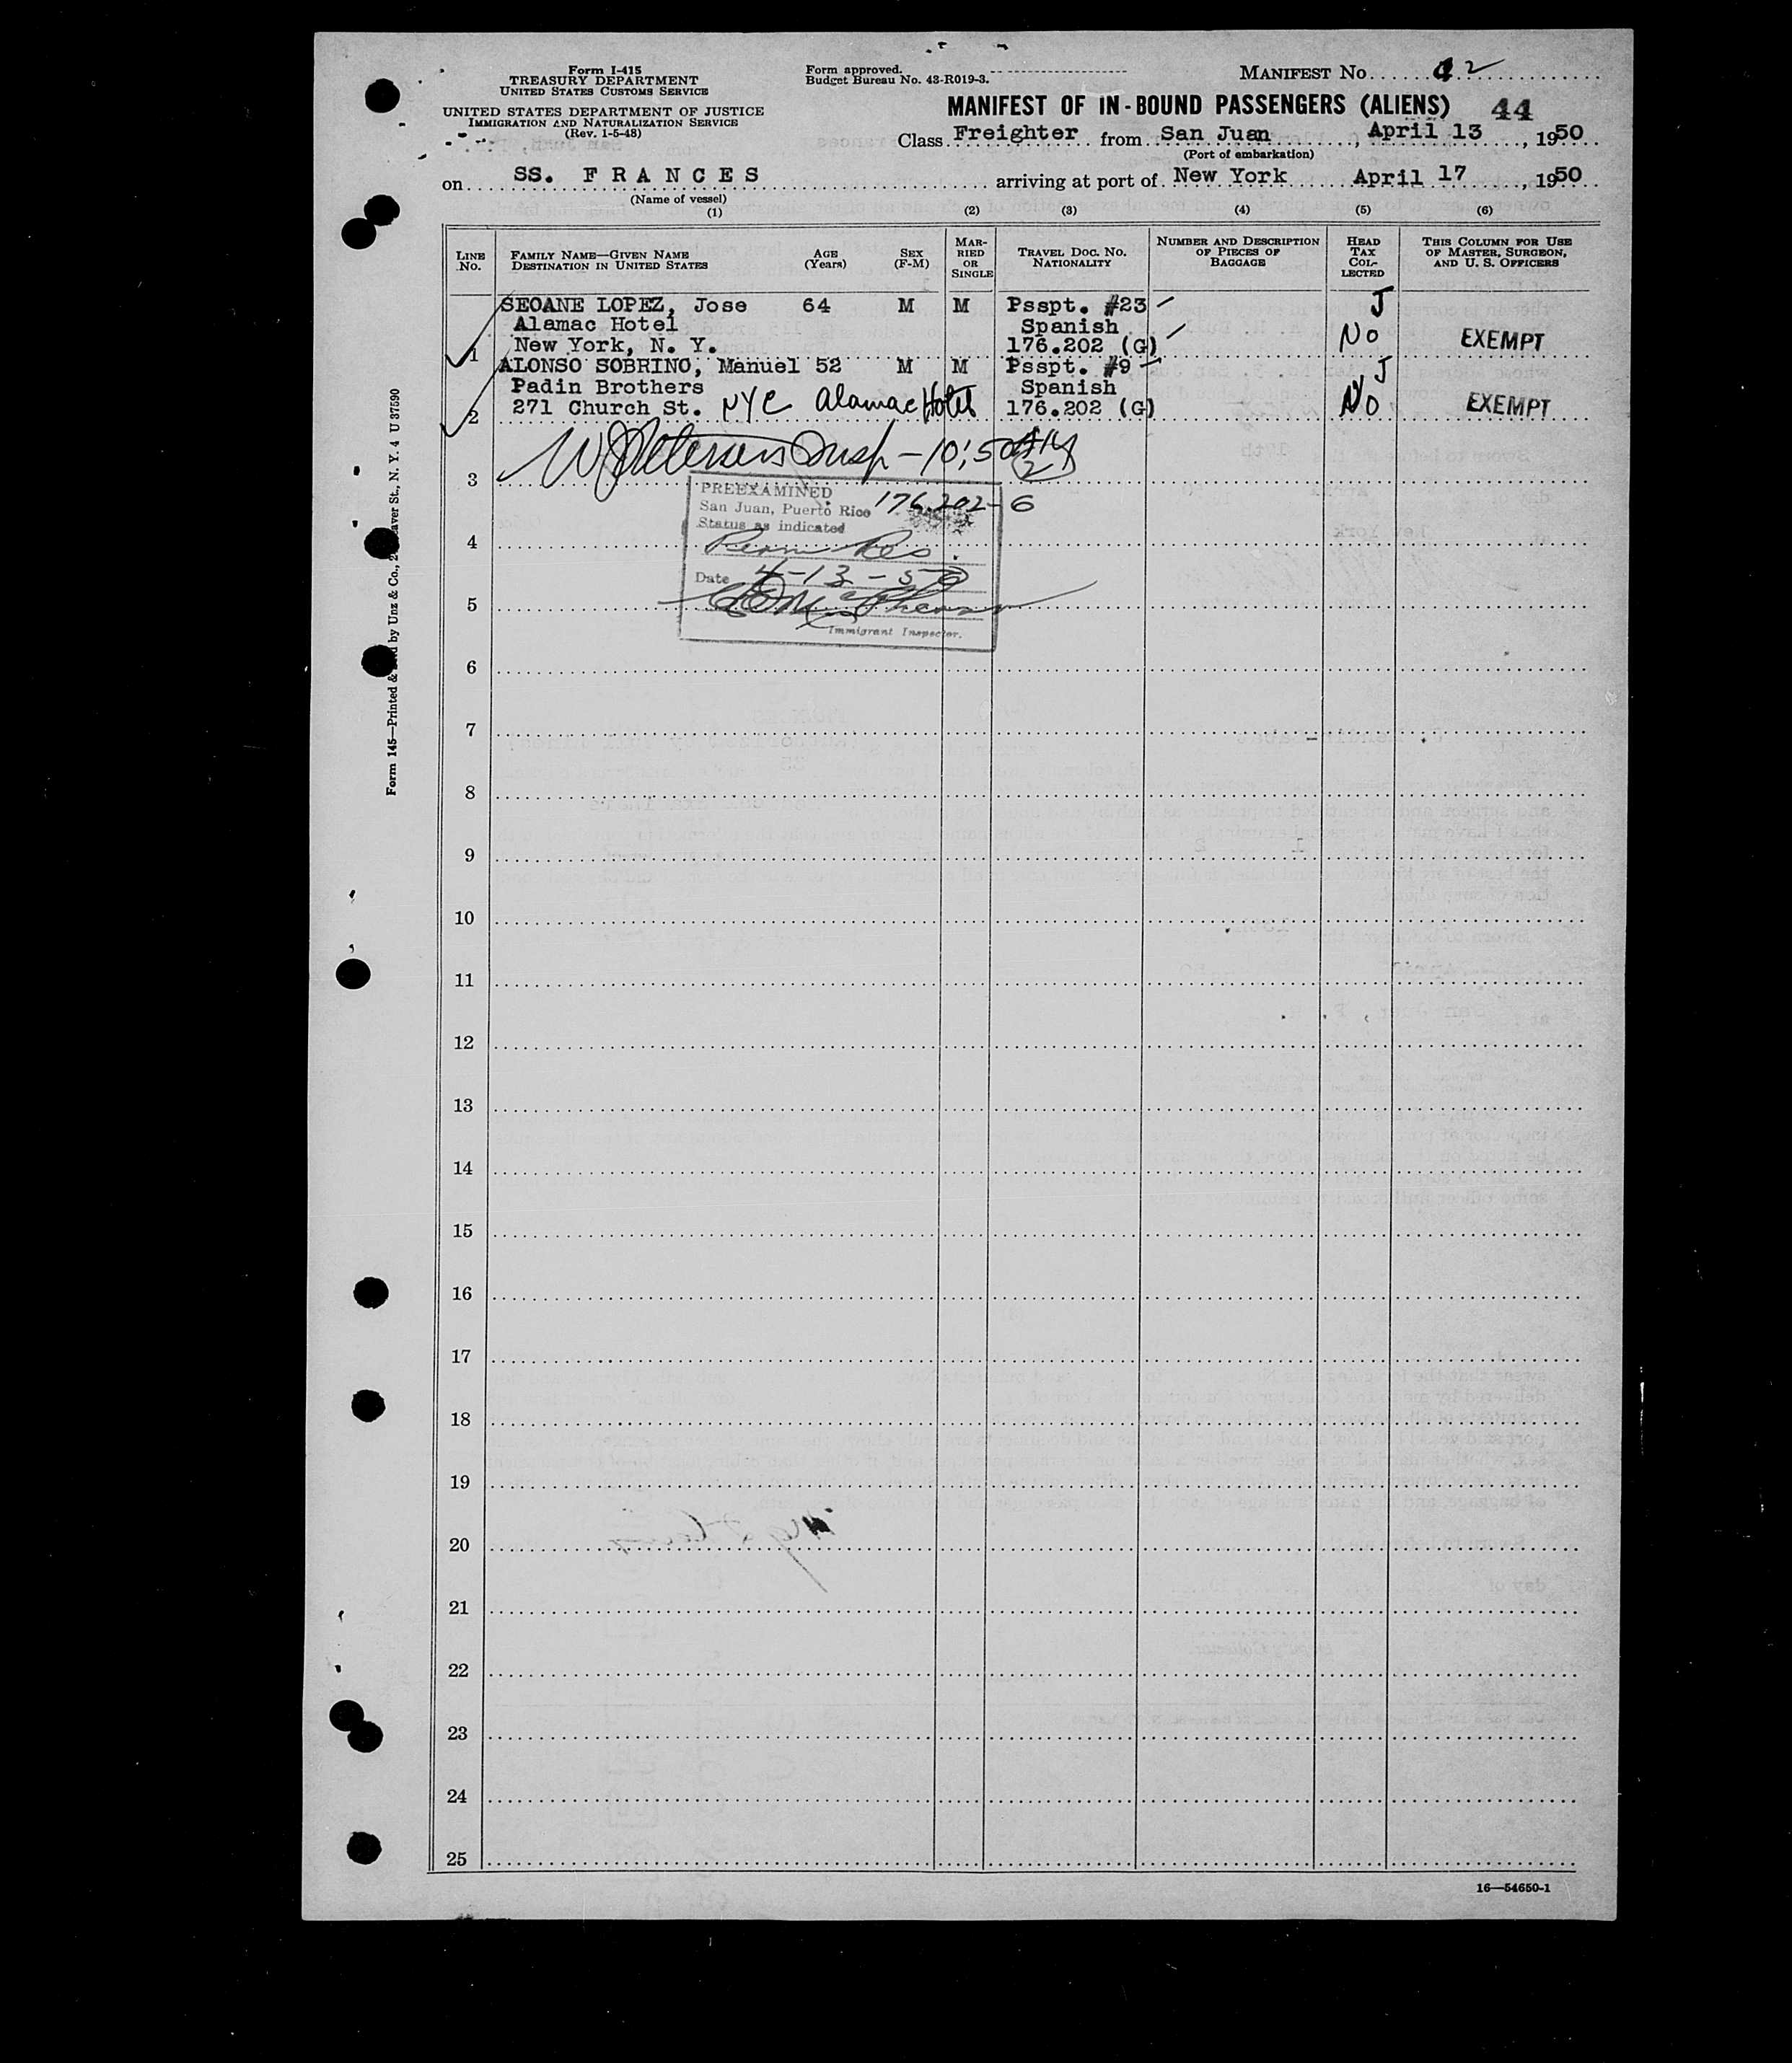 Form I-415
TREASURY DEPARTMENT
UNITED STATES CUSTOMS SERVICE
UNITED STATES DEPARTMENT OF JUSTICE
IMMIGRATION AND NATURALIZATION SERVICE
(Rev. 1-5-48)
Form approved.
Budget Bureau No. 43-R019-3.
MANIFEST No. 2
MANIFEST OF IN-BOUND PASSENGERS (ALIENS) 44
Class Freighter from San Juan, April 13, 1950
(Port of embarkation)
on SS. FRANCES arriving at port of New York April 17, 1950
(Name of vessel)
(1) (2) (3) (4) (5) (6)
LINE No. FAMILY NAME—GIVEN NAME DESTINATION IN UNITED STATES AGE (Years) SEX (F-M) MARRIED OR SINGLE TRAVEL DOC. NO. NATIONALITY NUMBER AND DESCRIPTION OF PIECES OF BAGGAGE HEAD TAX COLLECTED THIS COLUMN FOR USE OF MASTER, SURGEON, AND U. S. OFFICERS
SEOANE LOPEZ, Jose 64 M M Psspt. #23 J
Alamac Hotel Spanish No EXEMPT
1 New York, N. Y. 176.202 (G)
ALONSO SOBRINO, Manuel 52 M M Psspt. #9 J
Padin Brothers Spanish No EXEMPT
2 271 Church St. NYC Alamac Hotel 176.202 (G)
Insp - 10:50 AM
2
3
PREEXAMINED
San Juan, Puerto Rico 176.202-G
Status as indicated
4 Perm Res.
Date 4-13-50
5
Immigrant Inspector.
6
7
8
9
10
11
12
13
14
15
16
17
18
19
20
21
22
23
24
25
16—54650-1
Form 145—Printed & by Unz & Co., St., N. Y. 4 U 37590